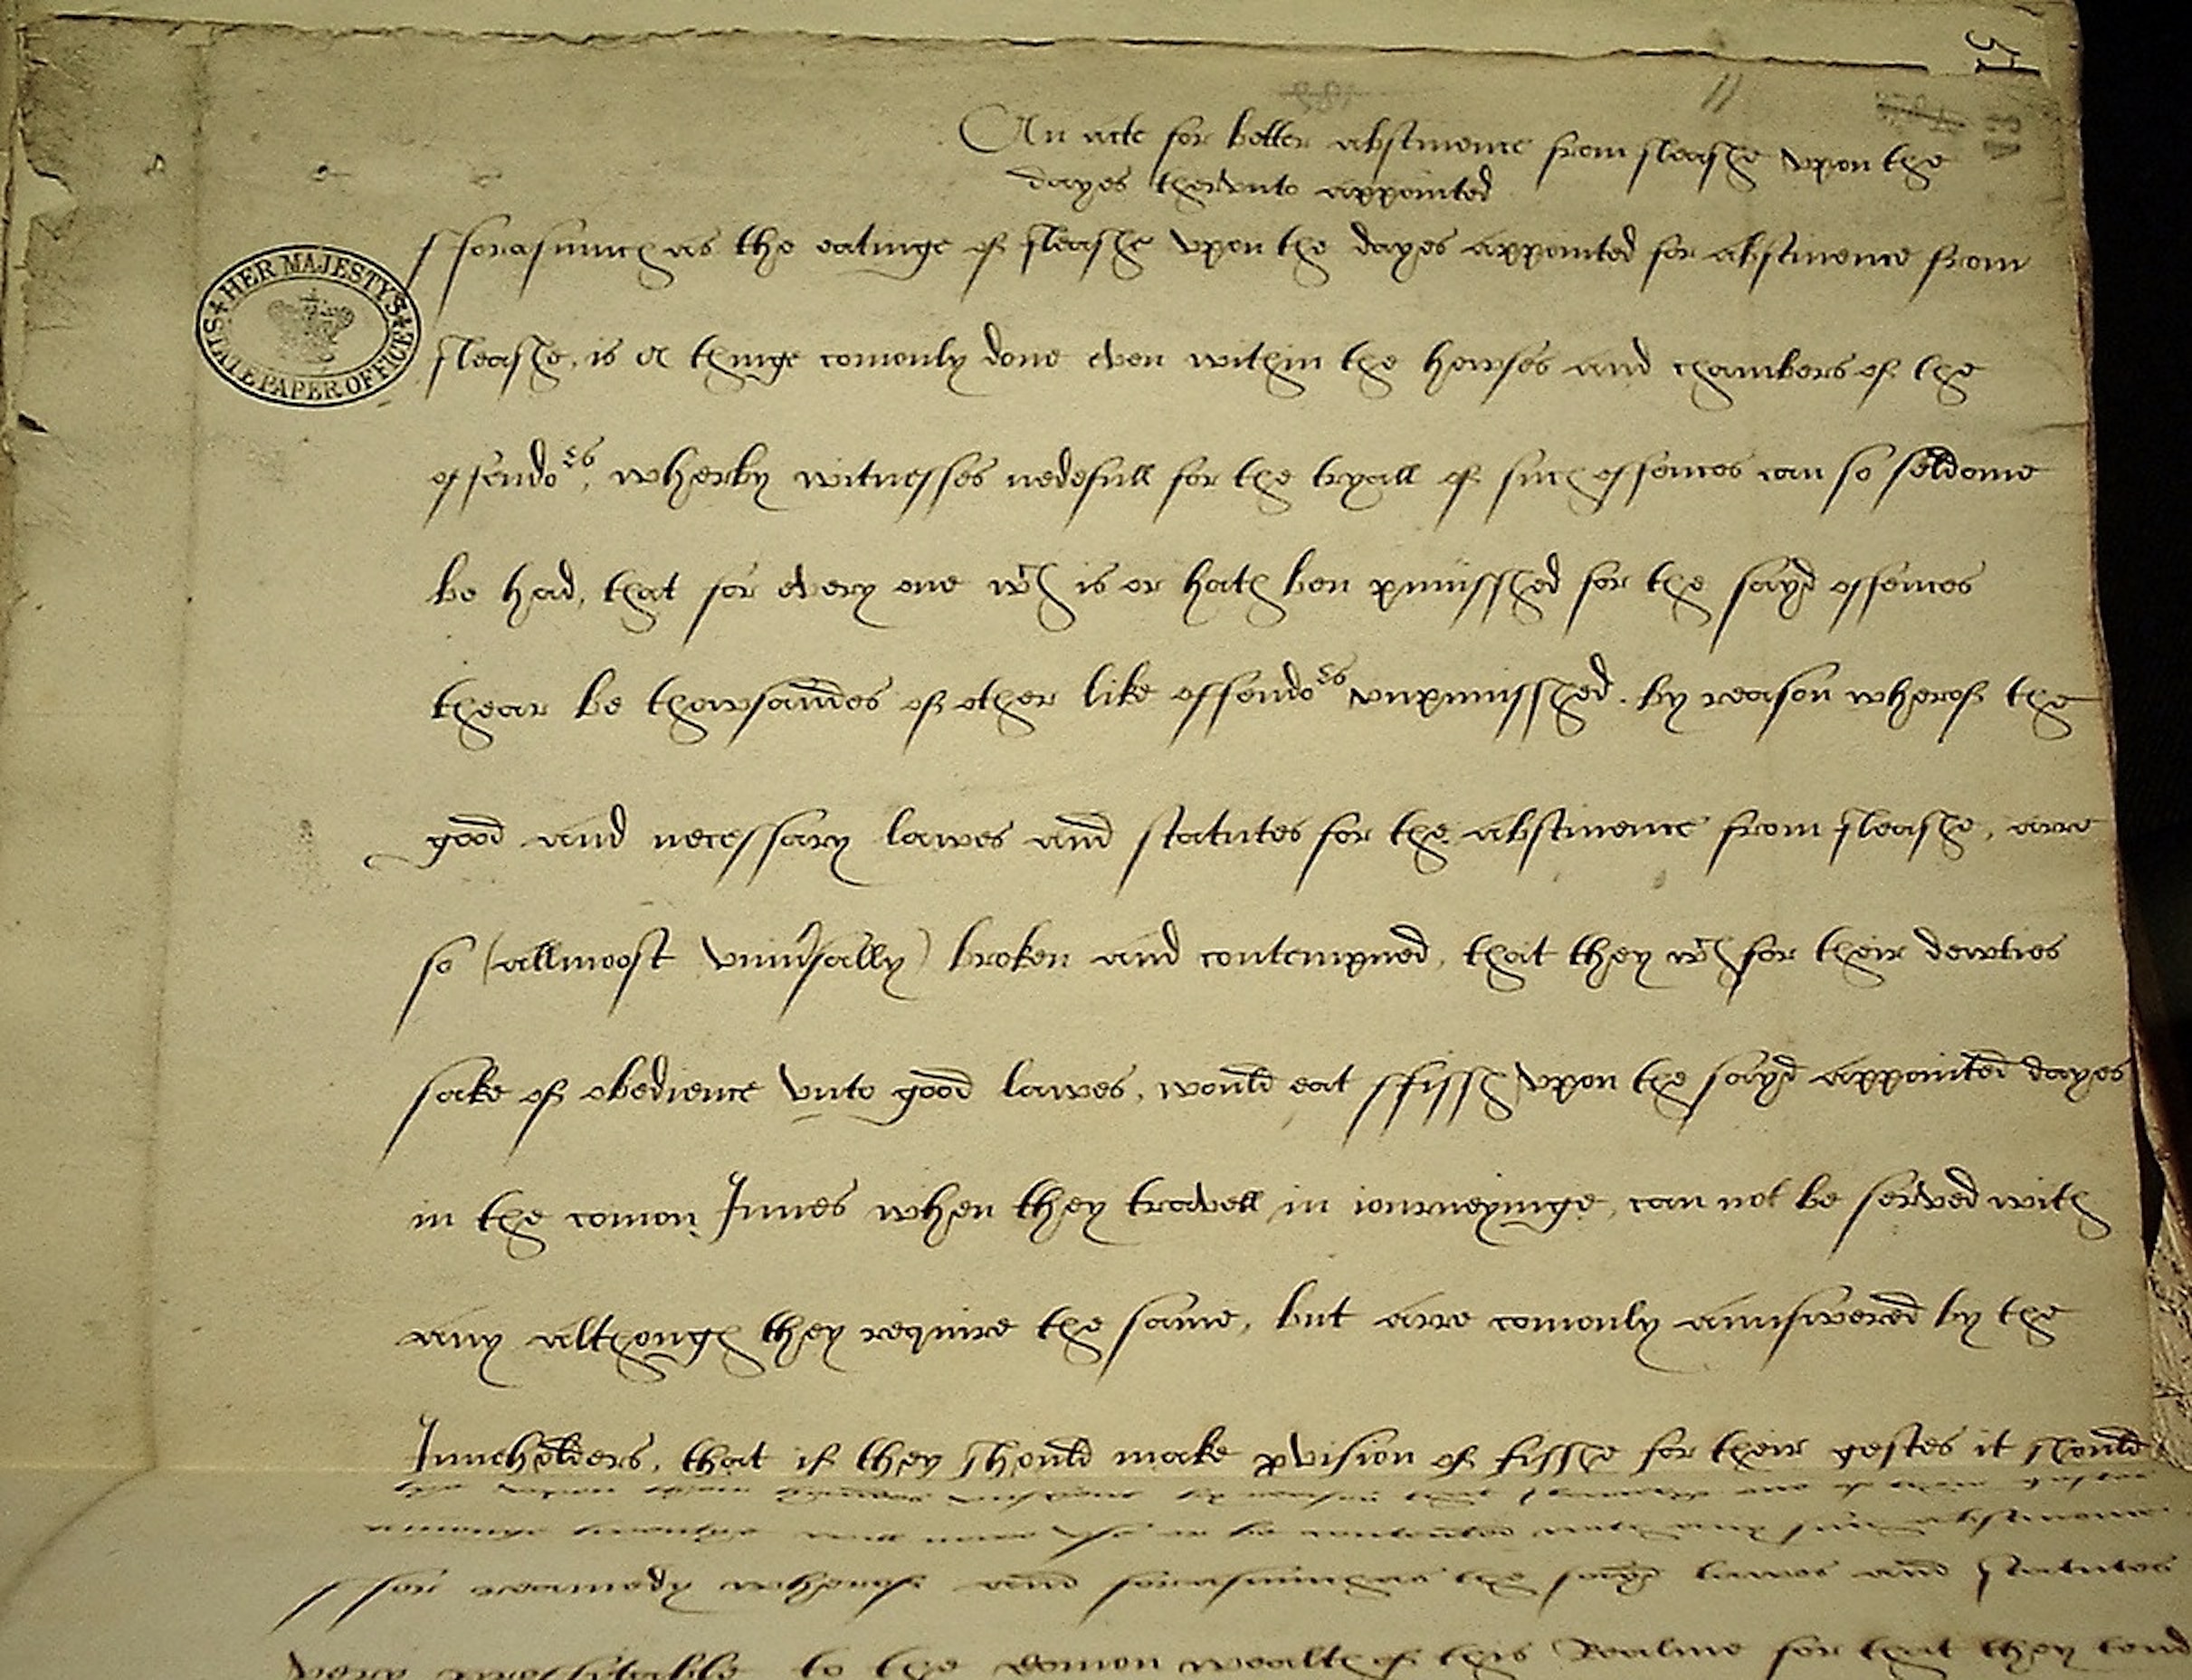 51
11
An acte for better abstinence from fleashe vpon the
dayes thervnto appointed
HER MAJESTY'S STATE PAPER OFFICE
fforasmuch as the eatinge of fleashe vpon the dayes appointed for abstinence from
fleashe, is a thinge comonly done even within the howses and chambers of the
offendors, wherby witnesses nedefull for the tryall of such offences can so seldome
be had, that for every one wch is or hath ben punisshed for the sayd offences
thear be thowsandes of other like offendors vnpunisshed. by reason wherof the
good and necessary lawes and statutes for the abstinence from fleashe, arre
so (allmoost vniversally) broken and contempned, that they wch for their dewties
sake of obedience vnto good lawes, would eat ffissh vpon the sayd appointed dayes
in the comon Innes when they travell in iourneyinge, can not be served with
any although they require the same, but arre comonly aunswered by the
Inneholders, that if they should make pvision of fisshe for their gestes it should
lye vpon their handes vnspent by reason that scarcely one of their gestes
amonge twentye will
or be contented with any such abstinence
ffor reamedy wherof and forasmuch as the sayd lawes and statutes
very proffitable to the comon wealth of this Realme for that they tend